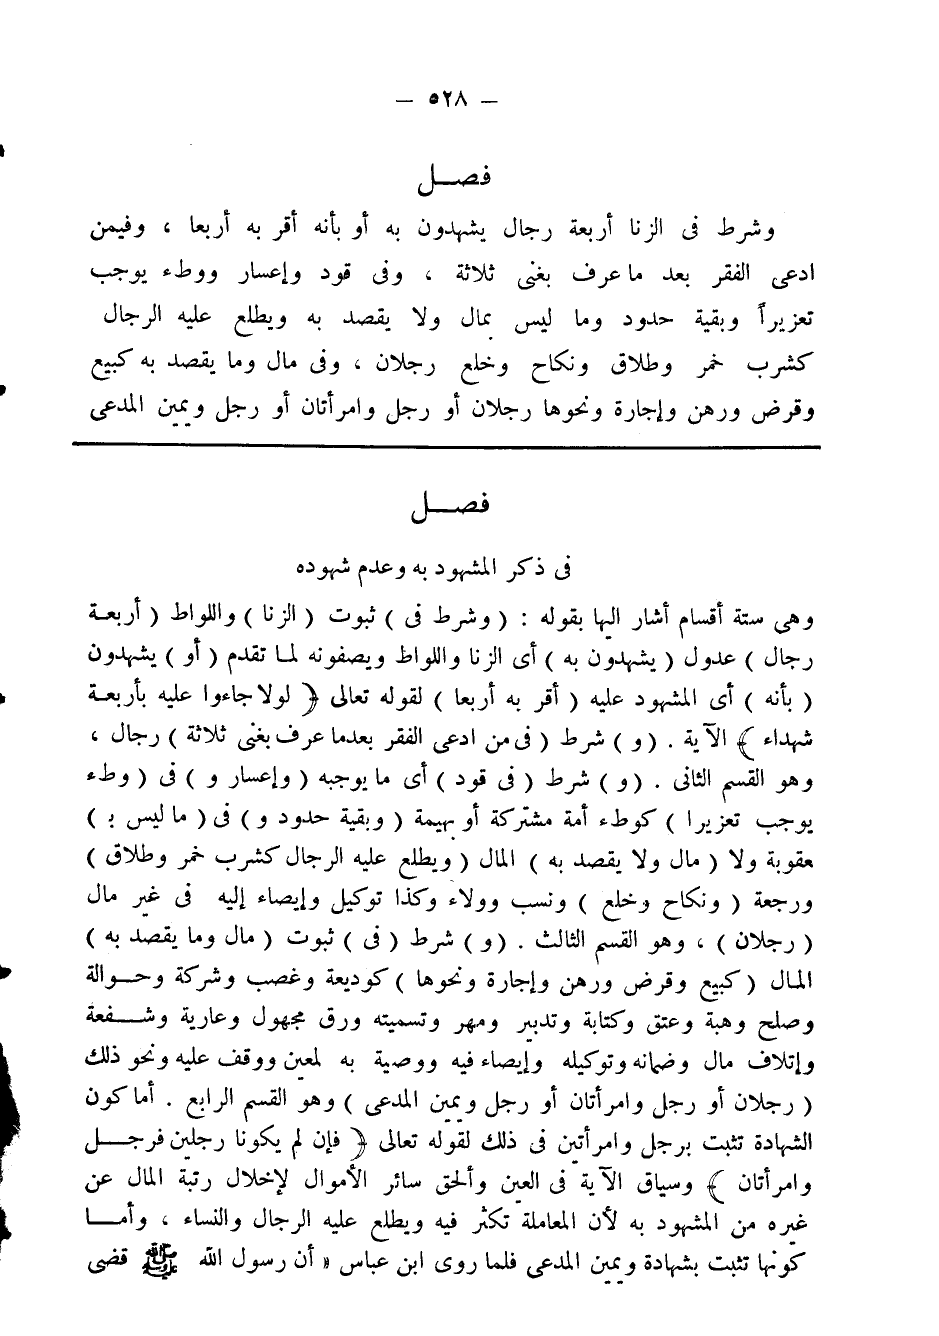 — ٥٢٨ —
فصل
وشرط فى الزنا أربعة رجال يشهدون به أو بأنه أقر به أربعا ، وفيمن
ادعى الفقر بعد ما عرف بغنى ثلاثة ، وفى قود وإعسار ووطء يوجب
تعزيراً وبقية حدود وما ليس بمال ولا يقصد به ويطلع عليه الرجال
كشرب خمر وطلاق ونكاح وخلع رجلان ، وفى مال وما يقصد به كبيع
وقرض ورهن وإجارة ونحوها رجلان أو رجل وامرأتان أو رجل ويمين المدعى
فصل
فى ذكر المشهود به وعدم شهوده
وهى ستة أقسام أشار اليها بقوله : ( وشرط فى ) ثبوت ( الزنا ) واللواط ( أربعة
رجال ) عدول ( يشهدون به ) أى الزنا واللواط ويصفونه لما تقدم ( أو ) يشهدون
( بأنه ) أى المشهود عليه ( أقر به أربعا ) لقوله تعالى ﴿ لولا جاءوا عليه بأربعة
شهداء ﴾ الآية . ( و ) شرط ( فى من ادعى الفقر بعدما عرف بغنى ثلاثة ) رجال ،
وهو القسم الثانى . ( و ) شرط ( فى قود ) أى ما يوجبه ( وإعسار و ) فى ( وطء
يوجب تعزيرا ) كوطء أمة مشتركة أو بهيمة ( وبقية حدود و ) فى ( ما ليس بـ )
عقوبة ولا ( مال ولا يقصد به ) المال ( ويطلع عليه الرجال كشرب خمر وطلاق )
ورجعة ( ونكاح وخلع ) ونسب وولاء وكذا توكيل وإيصاء إليه فى غير مال
( رجلان ) ، وهو القسم الثالث . ( و ) شرط ( فى ) ثبوت ( مال وما يقصد به )
المال ( كبيع وقرض ورهن وإجارة ونحوها ) كوديعة وغصب وشركة وحوالة
وصلح وهبة وعتق وكتابة وتدبير ومهر وتسميته ورق مجهول وعارية وشفعة
وإتلاف مال وضمانه وتوكيله وإيصاء فيه ووصية به لمعين ووقف عليه ونحو ذلك
( رجلان أو رجل وامرأتان أو رجل ويمين المدعى ) وهو القسم الرابع . أما كون
الشهادة تثبت برجل وامرأتين فى ذلك لقوله تعالى ﴿ فإن لم يكونا رجلين فرجل
وامرأتان ﴾ وسياق الآية فى العين وألحق سائر الأموال لإخلال رتبة المال عن
غيره من المشهود به لأن المعاملة تكثر فيه ويطلع عليه الرجال والنساء ، وأما
كونها تثبت بشهادة ويمين المدعى فلما روى ابن عباس « أن رسول الله ﷺ قضى